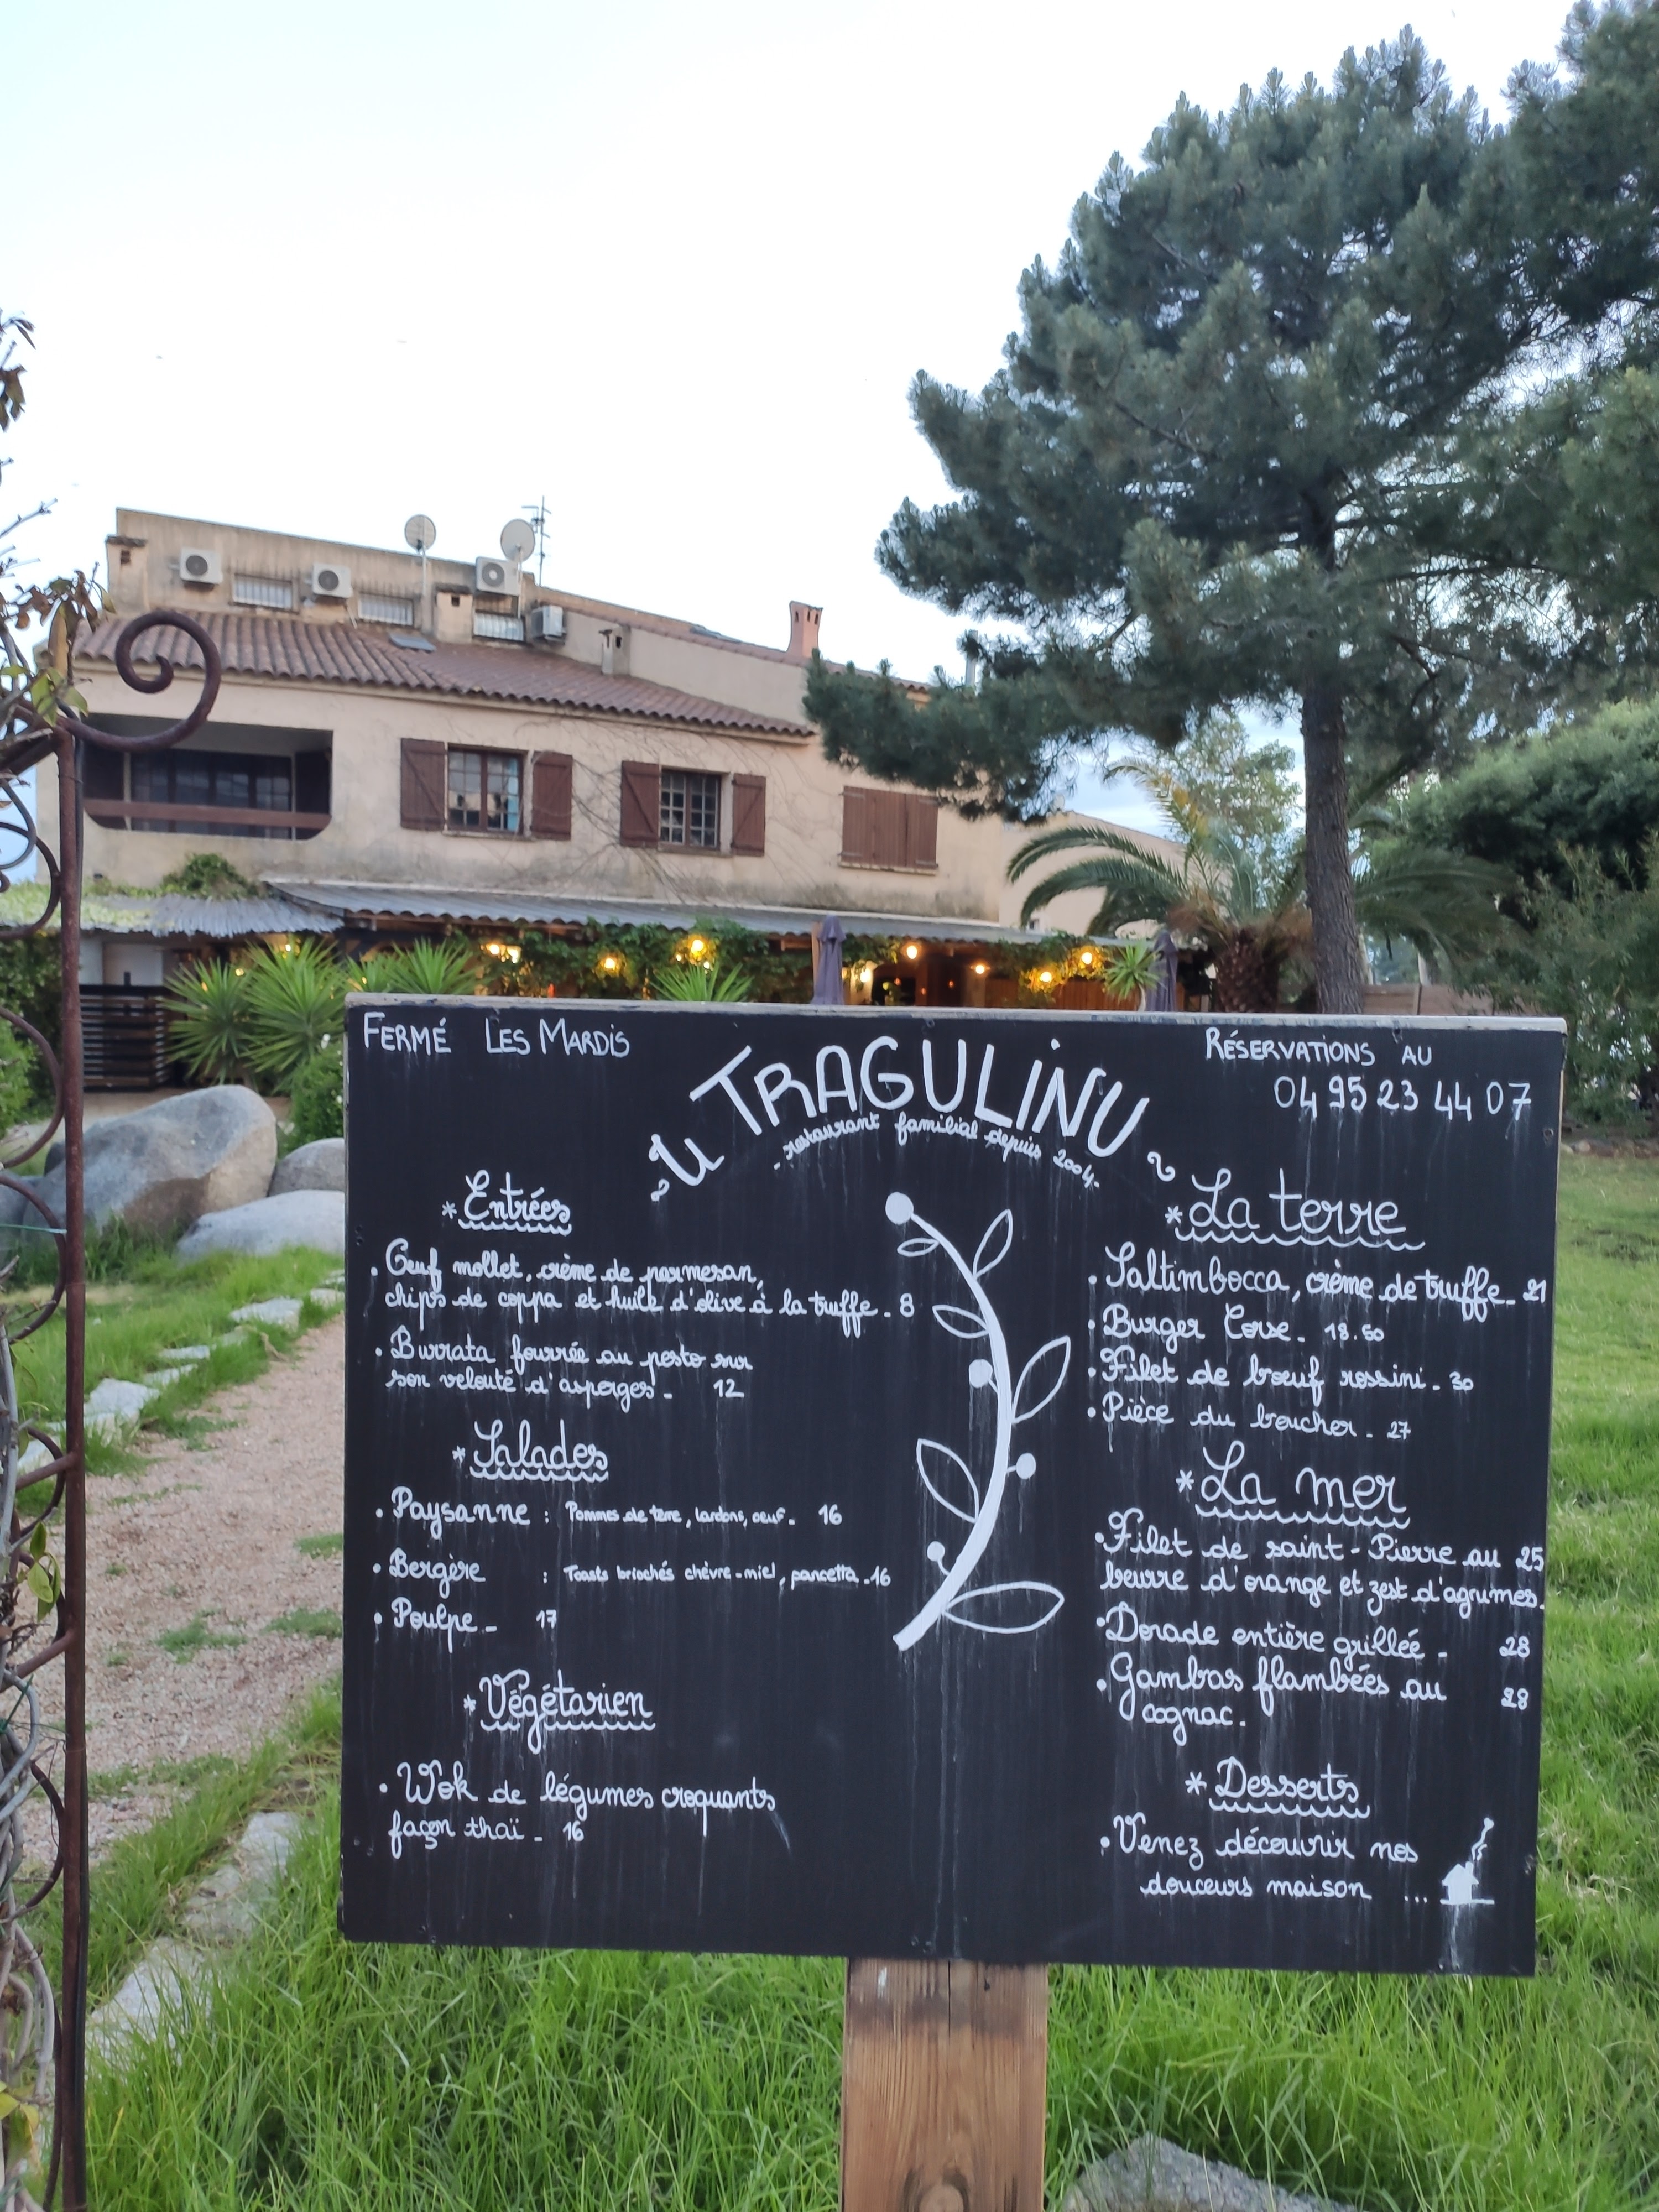 FERMÉ LES MARDIS
U TRAGULINU
- restaurant familial depuis 2004 -
RÉSERVATIONS AU
04 95 23 44 07
* Entrées
• Œuf mollet, crème de parmesan,
chips de coppa et huile d'olive à la truffe - 8
• Burrata fourrée au pesto sur
son velouté d'asperges - 12
* Salades
• Paysanne : Pommes de terre, lardons, oeuf - 16
• Bergère : Toasts briochés chèvre-miel, pancetta - 16
• Poulpe - 17
* Végétarien
• Wok de légumes croquants
façon thaï - 16
* La terre
• Saltimbocca, crème de truffe - 21
• Burger Corse - 18.50
• Filet de bœuf rossini - 30
• Pièce du boucher - 27
* La mer
• Filet de saint-Pierre au 25
beurre d'orange et zest d'agrumes.
• Dorade entière grillée - 28
• Gambas flambées au 28
cognac.
* Desserts
• Venez découvrir nos
douceurs maison ...